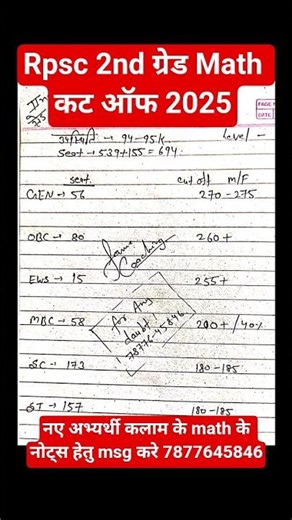 Rpsc 2nd ग्रेड Math
कट ऑफ 2025
PAGE
DATE
उपस्थिति → 94-95k
Level -
Seat → 539+155 = 694
seat
cut off M/F
GEN → 56
270-275
OBC → 80
260+
Coaching
EWS → 15
255+
for Any
doubt!
78776-45846
MBC → 58
200+ /40%
SC → 173
180-185
ST → 157
180-185
नए अभ्यर्थी कलाम के math के
नोट्स हेतु msg करे 7877645846